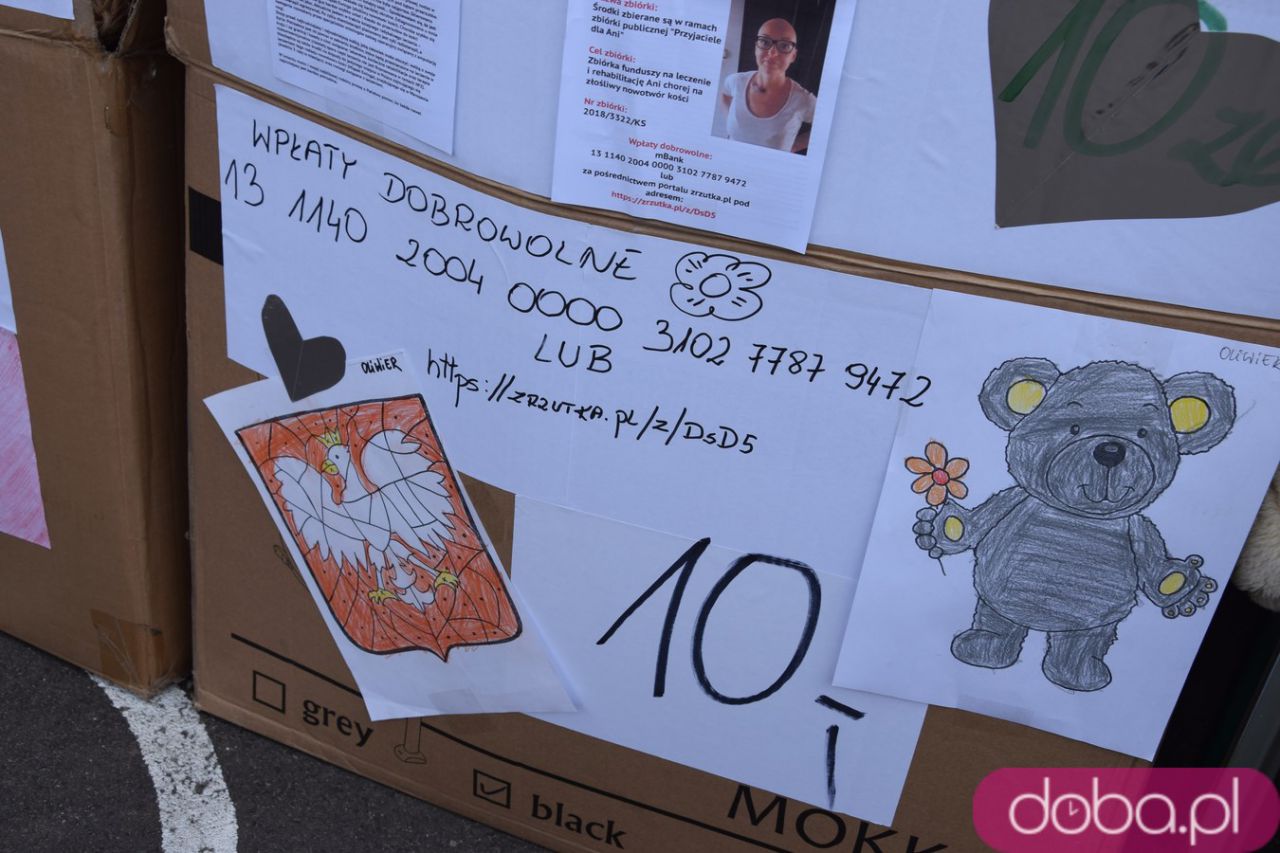 Nazwa zbiórki:
Środki zbierane są w ramach
zbiórki publicznej "Przyjaciele
dla Ani"
Cel zbiórki:
Zbiórka funduszy na leczenie
i rehabilitację Ani chorej na
złośliwy nowotwór kości
Nr zbiórki:
2018/3322/KS
Wpłaty dobrowolne:
mBank
13 1140 2004 0000 3102 7787 9472
lub
za pośrednictwem portalu zrzutka.pl pod
adresem:
https://zrzutka.pl/z/DsD5
10 zł
WPŁATY DOBROWOLNE
13 1140 2004 0000 3102 7787 9472
LUB
https://zrzutka.pl/z/DsD5
OLIWIER
OLIWIER
10,-
grey
black
MOKK
doba.pl